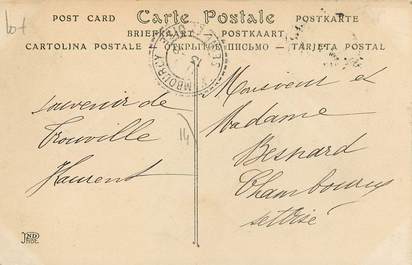 POST CARD Carte Postale POSTKARTE
BRIEFKAART POSTKAART
CARTOLINA POSTALE ОТКРЫТОЕ ПИСЬМО TARJETA POSTAL
lot
souvenir de
Trouville
Haurent
14
Monsieur et
Madame
Besnard
Chambourcy
set Oise
ND
PHOT.